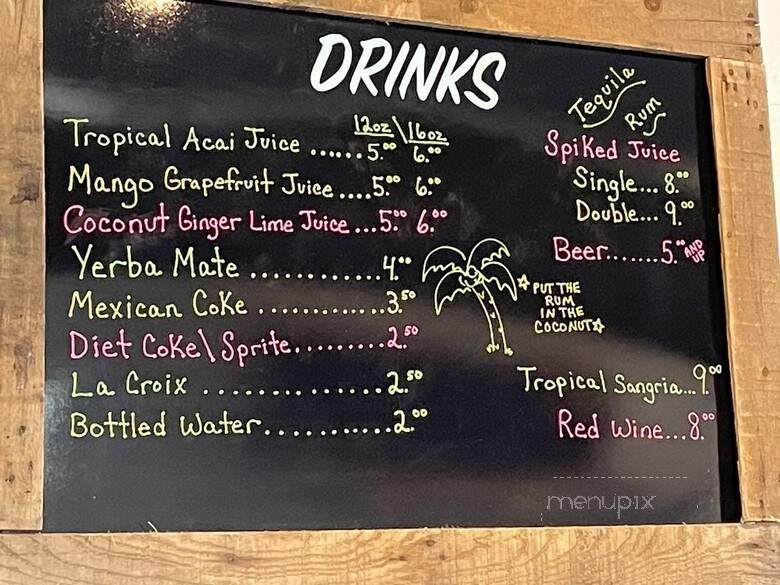 DRINKS
12oz\16oz
Tropical Acai Juice ......5.00 6.00
Mango Grapefruit Juice ....5.00 6.00
Coconut Ginger Lime Juice ...5.00 6.00
Yerba Mate ............4.00
Mexican Coke ............3.50
Diet Coke\Sprite..........2.50
La Croix ..............2.50
Bottled Water...........2.00
Tequila
Rum
Spiked Juice
Single... 8.00
Double... 9.00
Beer.......5.00 AND UP
PUT THE
RUM
IN THE
COCONUT
Tropical Sangria...9.00
Red Wine...8.00
menupix